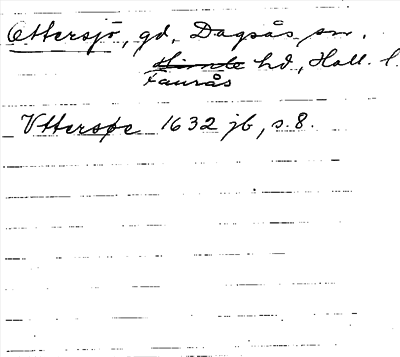 Ottersjö, gd, Dagsås sn.
Himle hd., Hall. l.
Faurås
Vttersøe 1632 jb, s. 8.